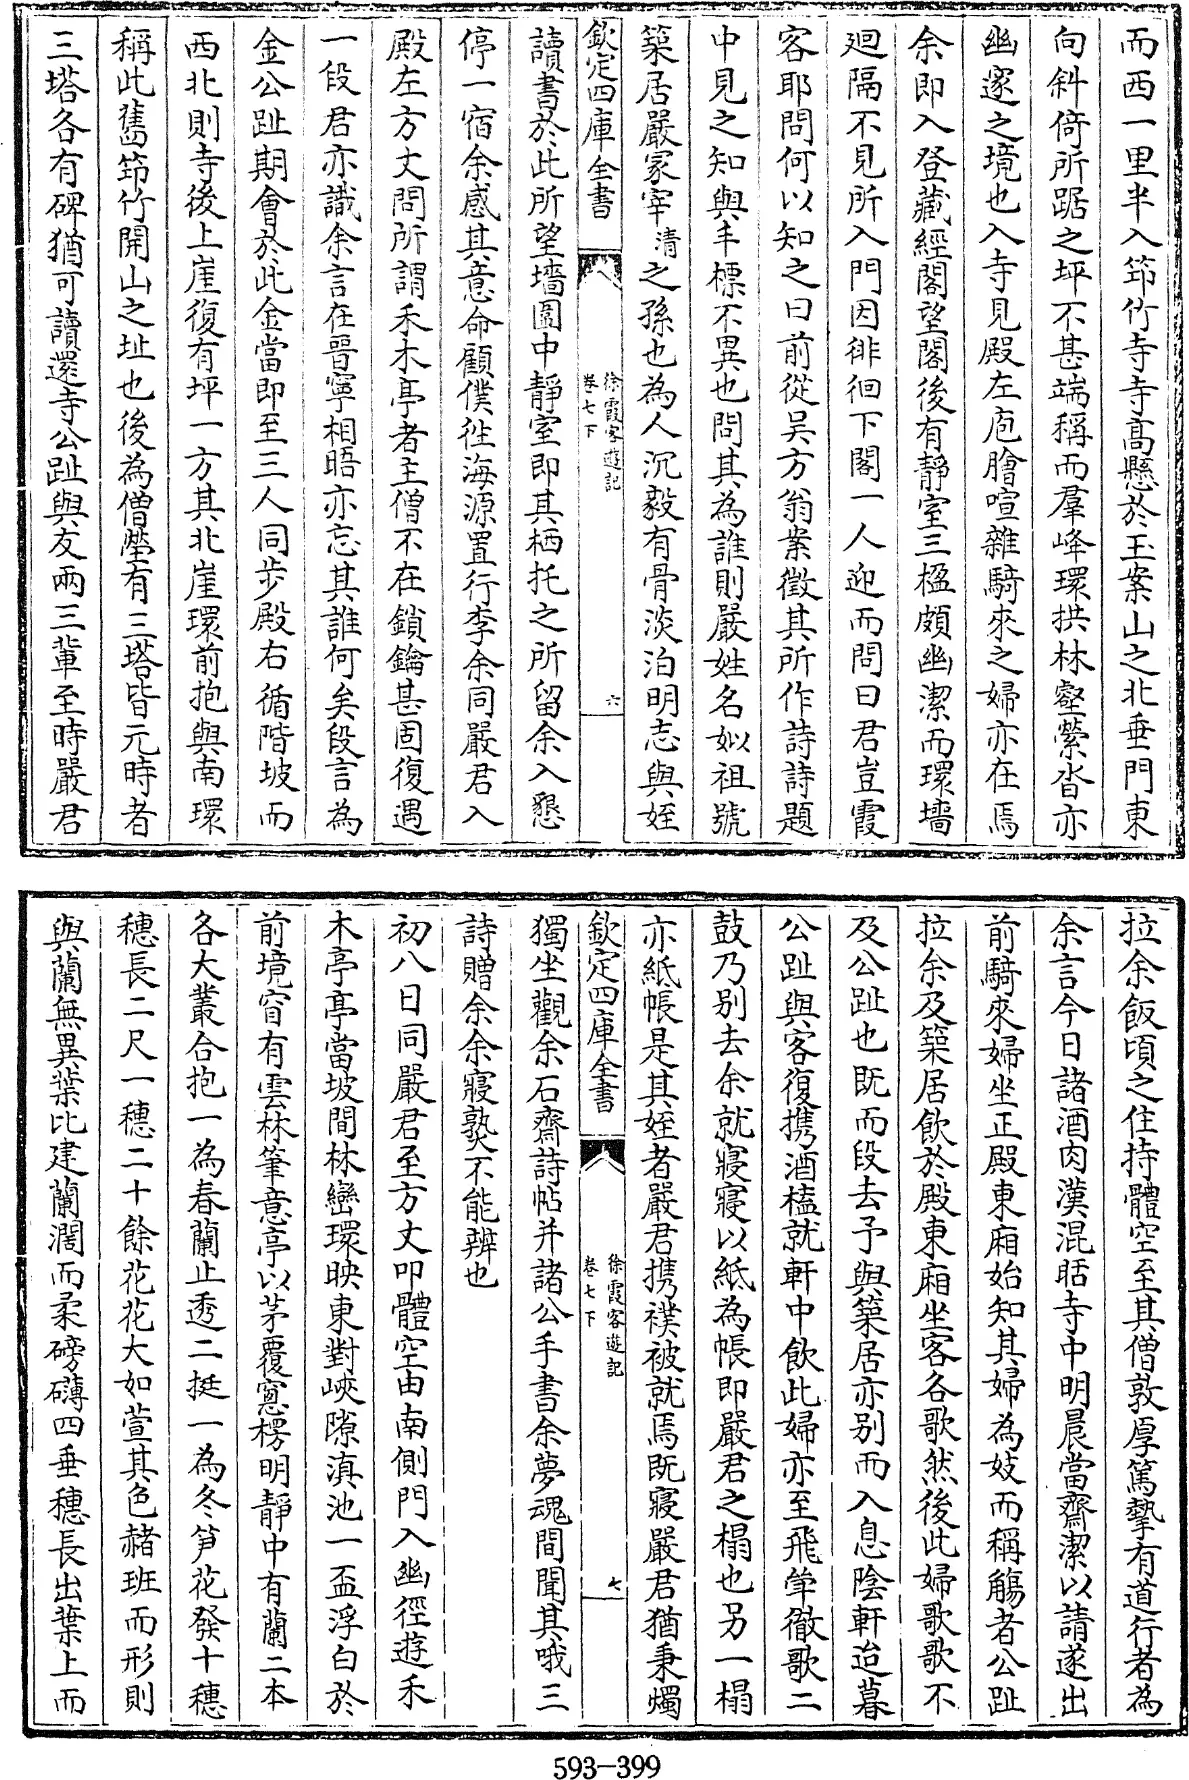 而西一里半入筇竹寺寺高懸於玉案山之北垂門東
向斜倚所踞之坪不甚端稱而羣峰環拱林壑縈沓亦
幽邃之境也入寺見殿左庖膾喧雜騎來之婦亦在焉
余即入登藏經閣望閣後有靜室三楹頗幽潔而環墻
廻隔不見所入門因徘徊下閣一人迎而問曰君豈霞
客耶問何以知之曰前從吴方翁案徵其所作詩詩題
中見之知與丰標不異也問其為誰則嚴姓名似祖號
築居嚴冢宰清之孫也為人沉毅有骨淡泊明志與姪
欽定四庫全書
徐霞客遊記
卷七下
六
讀書於此所望墻圍中靜室即其栖托之所留余入懇
停一宿余感其意命顧僕徃海源置行李余同嚴君入
殿左方丈問所謂禾木亭者主僧不在鎖鑰甚固復遇
一段君亦識余言在晉寧相晤亦忘其誰何矣段言為
金公趾期會於此金當即至三人同步殿右循階坡而
西北則寺後上崖復有坪一方其北崖環前抱與南環
稱此舊筇竹開山之址也後為僧塋有三塔皆元時者
三塔各有碑猶可讀還寺公趾與友兩三軰至時嚴君
拉余飯頃之住持體空至其僧敦厚篤摯有道行者為
余言今日諸酒肉漢混聒寺中明晨當齋潔以請遂出
前騎來婦坐正殿東廂始知其婦為妓而稱觴者公趾
拉余及築居飲於殿東廂坐客各歌然後此婦歌歌不
及公趾也既而段去予與築居亦别而入息陰軒迨暮
公趾與客復携酒榼就軒中飲此婦亦至飛斚徹歌二
鼓乃别去余就寢寢以紙為帳即嚴君之榻也另一榻
亦紙帳是其姪者嚴君携襆被就焉既寢嚴君猶秉燭
欽定四庫全書
徐霞客遊記
卷七下
七
獨坐觀余石齋詩帖并諸公手書余夢魂間聞其哦三
詩贈余余寢熟不能辨也
初八日同嚴君至方丈叩體空由南側門入幽徑遊禾
木亭亭當坡間林巒環映東對峽隙滇池一盃浮白於
前境窅有雲林筆意亭以茅覆窻楞明靜中有蘭二本
各大叢合抱一為春蘭止透二挺一為冬笋花發十穗
穗長二尺一穗二十餘花花大如萱其色赭斑而形則
與蘭無異葉比建蘭濶而柔磅礴四垂穗長出葉上而
593-399